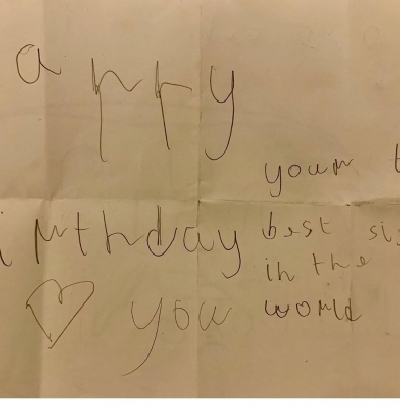 appy
irthday
♡ you
your t
best sis
in the
world